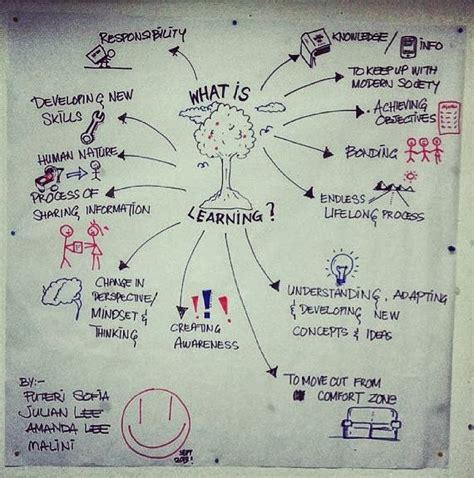 RESPONSIBILITY
KNOWLEDGE/
INFO
WHAT IS
LEARNING?
TO KEEP UP WITH
MODERN SOCIETY
DEVELOPING NEW
SKILLS
ACHIEVING
OBJECTIVES
HUMAN NATURE
BONDING
PROCESS OF
SHARING INFORMATION
ENDLESS
LIFELONG PROCESS
CHANGE IN
PERSPECTIVE/
MINDSET &
THINKING
CREATING
AWARENESS
UNDERSTANDING, ADAPTING
& DEVELOPING NEW
CONCEPTS & IDEAS
TO MOVE OUT FROM
COMFORT ZONE
BY:-
PUTERI SOFIA
JULIAN LEE
AMANDA LEE
MALINI